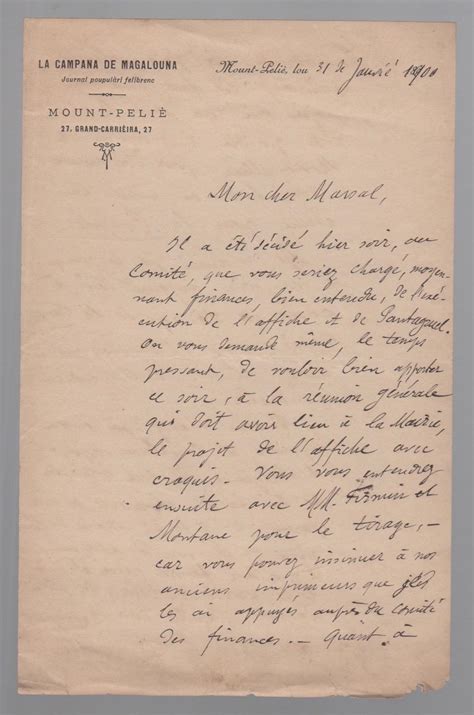 LA CAMPANA DE MAGALOUNA
Journal poupulàri felibrenc
MOUNT-PELIÈ
27, GRAND-CARRIÈIRA, 27
Mount-Pelié, lou 31 de Janvié 1900
Mon cher Marsal,
Il a été décidé hier soir, au
Comité, que vous seriez chargé, moyen-
nant finances, bien entendu, de l'exé-
cution de l'affiche et de Pantagruel.
On vous demande même, le temps
pressant, de vouloir bien apporter
ce soir, à la réunion générale
qui doit avoir lieu à la Mairie,
le projet de l'affiche avec
croquis. Vous vous entendrez
ensuite avec MM. Firmin et
Montane pour le tirage, —
car vous pouvez insinuer à nos
anciens imprimeurs que je
les ai appuyés auprès du Comité
des finances. — Quant à